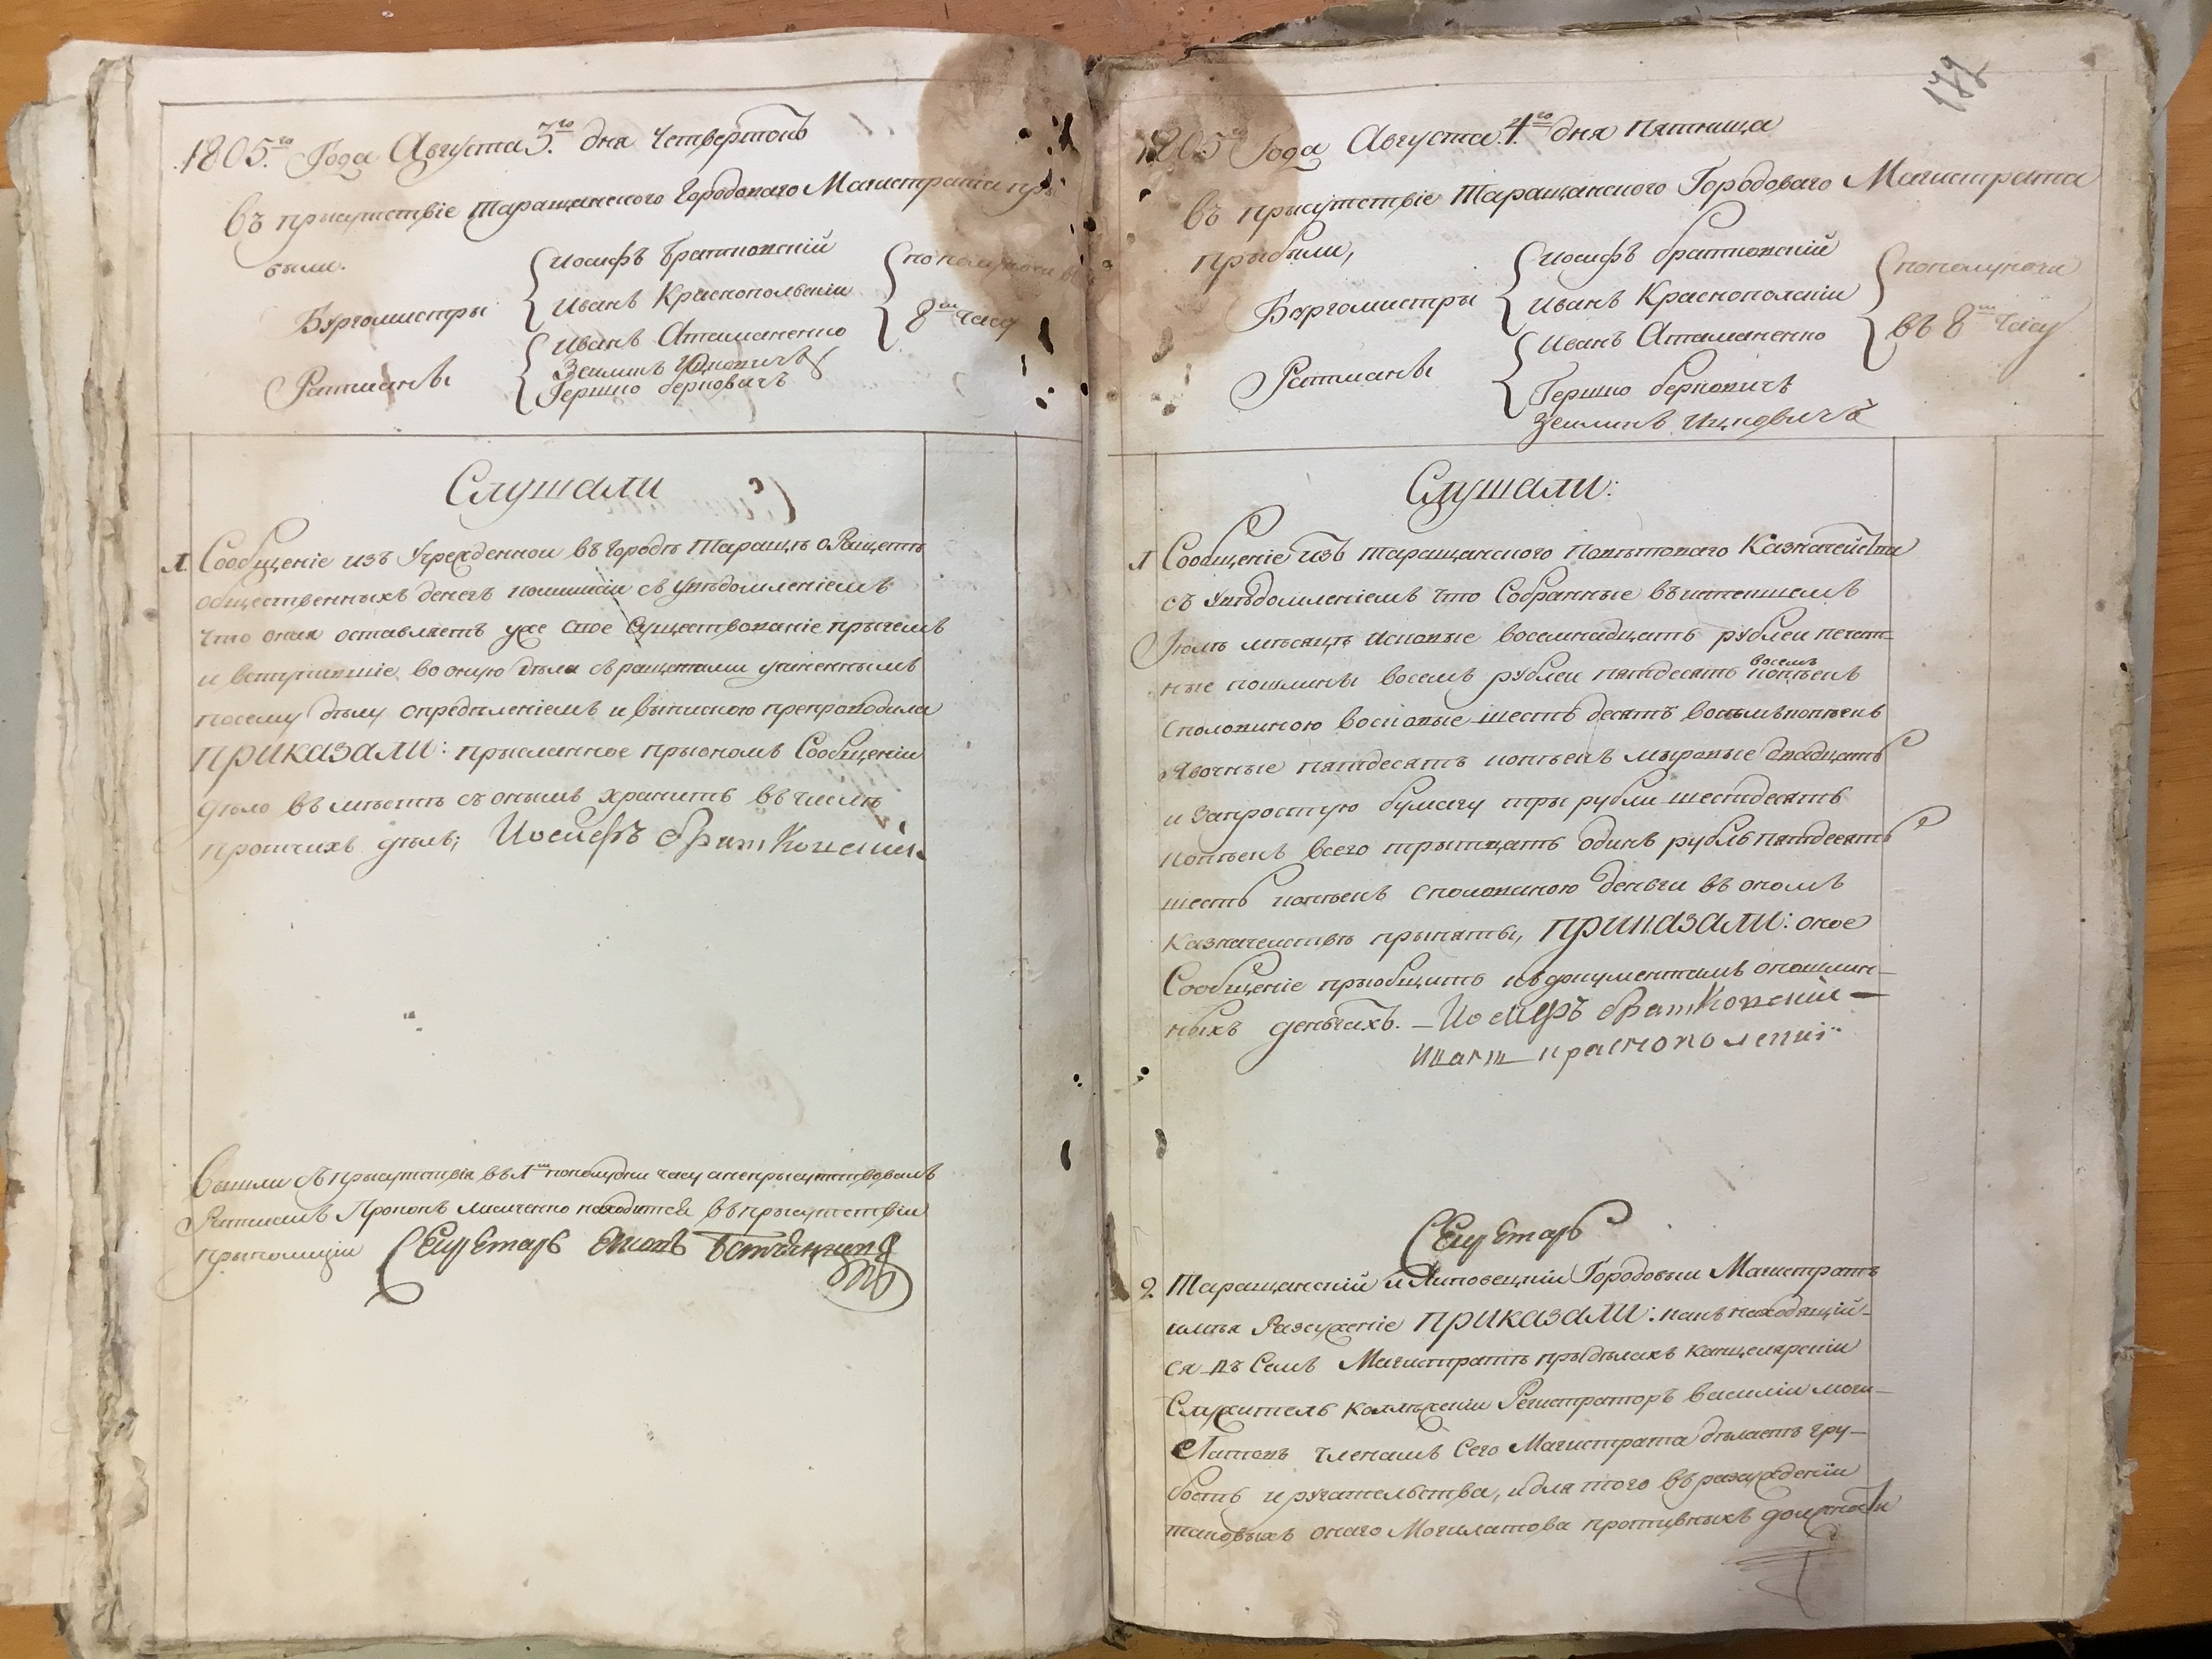 1805.го Года Августа 3.го дня Четвертокъ
въ присутствіе Таращанского Городоваго Магистрата при
были.
Бургомистры
Иосифъ Братковскій
Иванъ Краснопольскій
Ратманы
Иванъ Атаманенко
Зейликъ Ицковичъ
Гершко Берковичъ
пополуночи въ
8м часу
Слушали
1. Сообщеніе изъ Учрежденной въ городѣ Таращѣ о Ращетѣ
общественныхъ денегъ комисіи съ увѣдомленіемъ
что оная оставляетъ уже свое существованіе причемъ
и вступившіе во оную дѣла съ ращетами учиненнымъ
посему дѣлу опредѣленіемъ и выпискою препроводила
приказали: присланное приономъ Сообщеніи
дѣло вмѣстѣ съ онымъ хранить въ числѣ
протчихъ дѣлъ; Иосифъ Братковскій
Вышли съ присутствія въ 1м пополудни часу а неприсутствовалъ
Ратманъ Прокопъ находится въ присутствіи
приполиціи Секретарь
179
1805го Года Августа 4.го дня Пятница
въ присутствіе Таращанского Городоваго Магистрата
прибыли,
Бургомистры
Иосифъ Братковскій
Иванъ Краснополскій
Ратманы
Иванъ Атаманенко
Гершко Берковичъ
Зейликъ Ицковичъ
пополуночи
въ 8м часу
Слушали:
1 Сообщеніе изъ Таращанского Повѣтоваго Казначейства
съ Увѣдомленіемъ что Собранные въ истекшемъ
Іюлѣ мѣсяцѣ Исковые восемнадцать рублей печат-
ные пошлины восемъ рублей пятдесятъ восемъ копѣекъ
споловиною восковые шесть десятъ восемъ копѣекъ
Явочные пятдесятъ копѣекъ мыровые двадцать
и Запростую бумагу три рубли шестдесятъ
копѣекъ всего тритцать одинъ рубль пятдесятъ
шесть копѣекъ споловиною деньги въ ономъ
Казначействѣ приняты, приказали: оное
Сообщеніе приобщить къ документамъ опошлин-
ныхъ деньгахъ. – Иосифъ Братковскій –
Иванъ Краснополскій
Секретарь
2. Таращанскій и Липовецкій Городовый Магистратъ
имѣя Разсуженіе приказали: какъ находящій-
ся въ Семъ Магистратѣ придѣлахъ канцелярскій
Служитель колѣжскій Регистраторъ Василій Моги-
Латовъ членамъ Сего Магистрата дѣлаетъ гру-
бость и ругательства, идля того въ разсужденіи
таковыхъ онаго Могилатова противныхъ должности